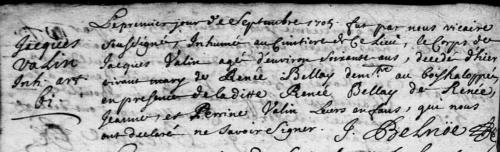 Jacques
Valin
Le premier jour de Septembre 1705. fut par nous vicaire
soussigné, Inhumé au Cimitiere de Ce Lieu, le Corps de
Jacques Valin agé d'environ soixante ans, decedé d'hier
vivant mary de Renée Bellay demte au
en presence de laditte Renée Bellay de Renée,
Jeanne, et Perrine Valin Leurs enfans, qui nous
ont declaré ne Savoir Signer. J.